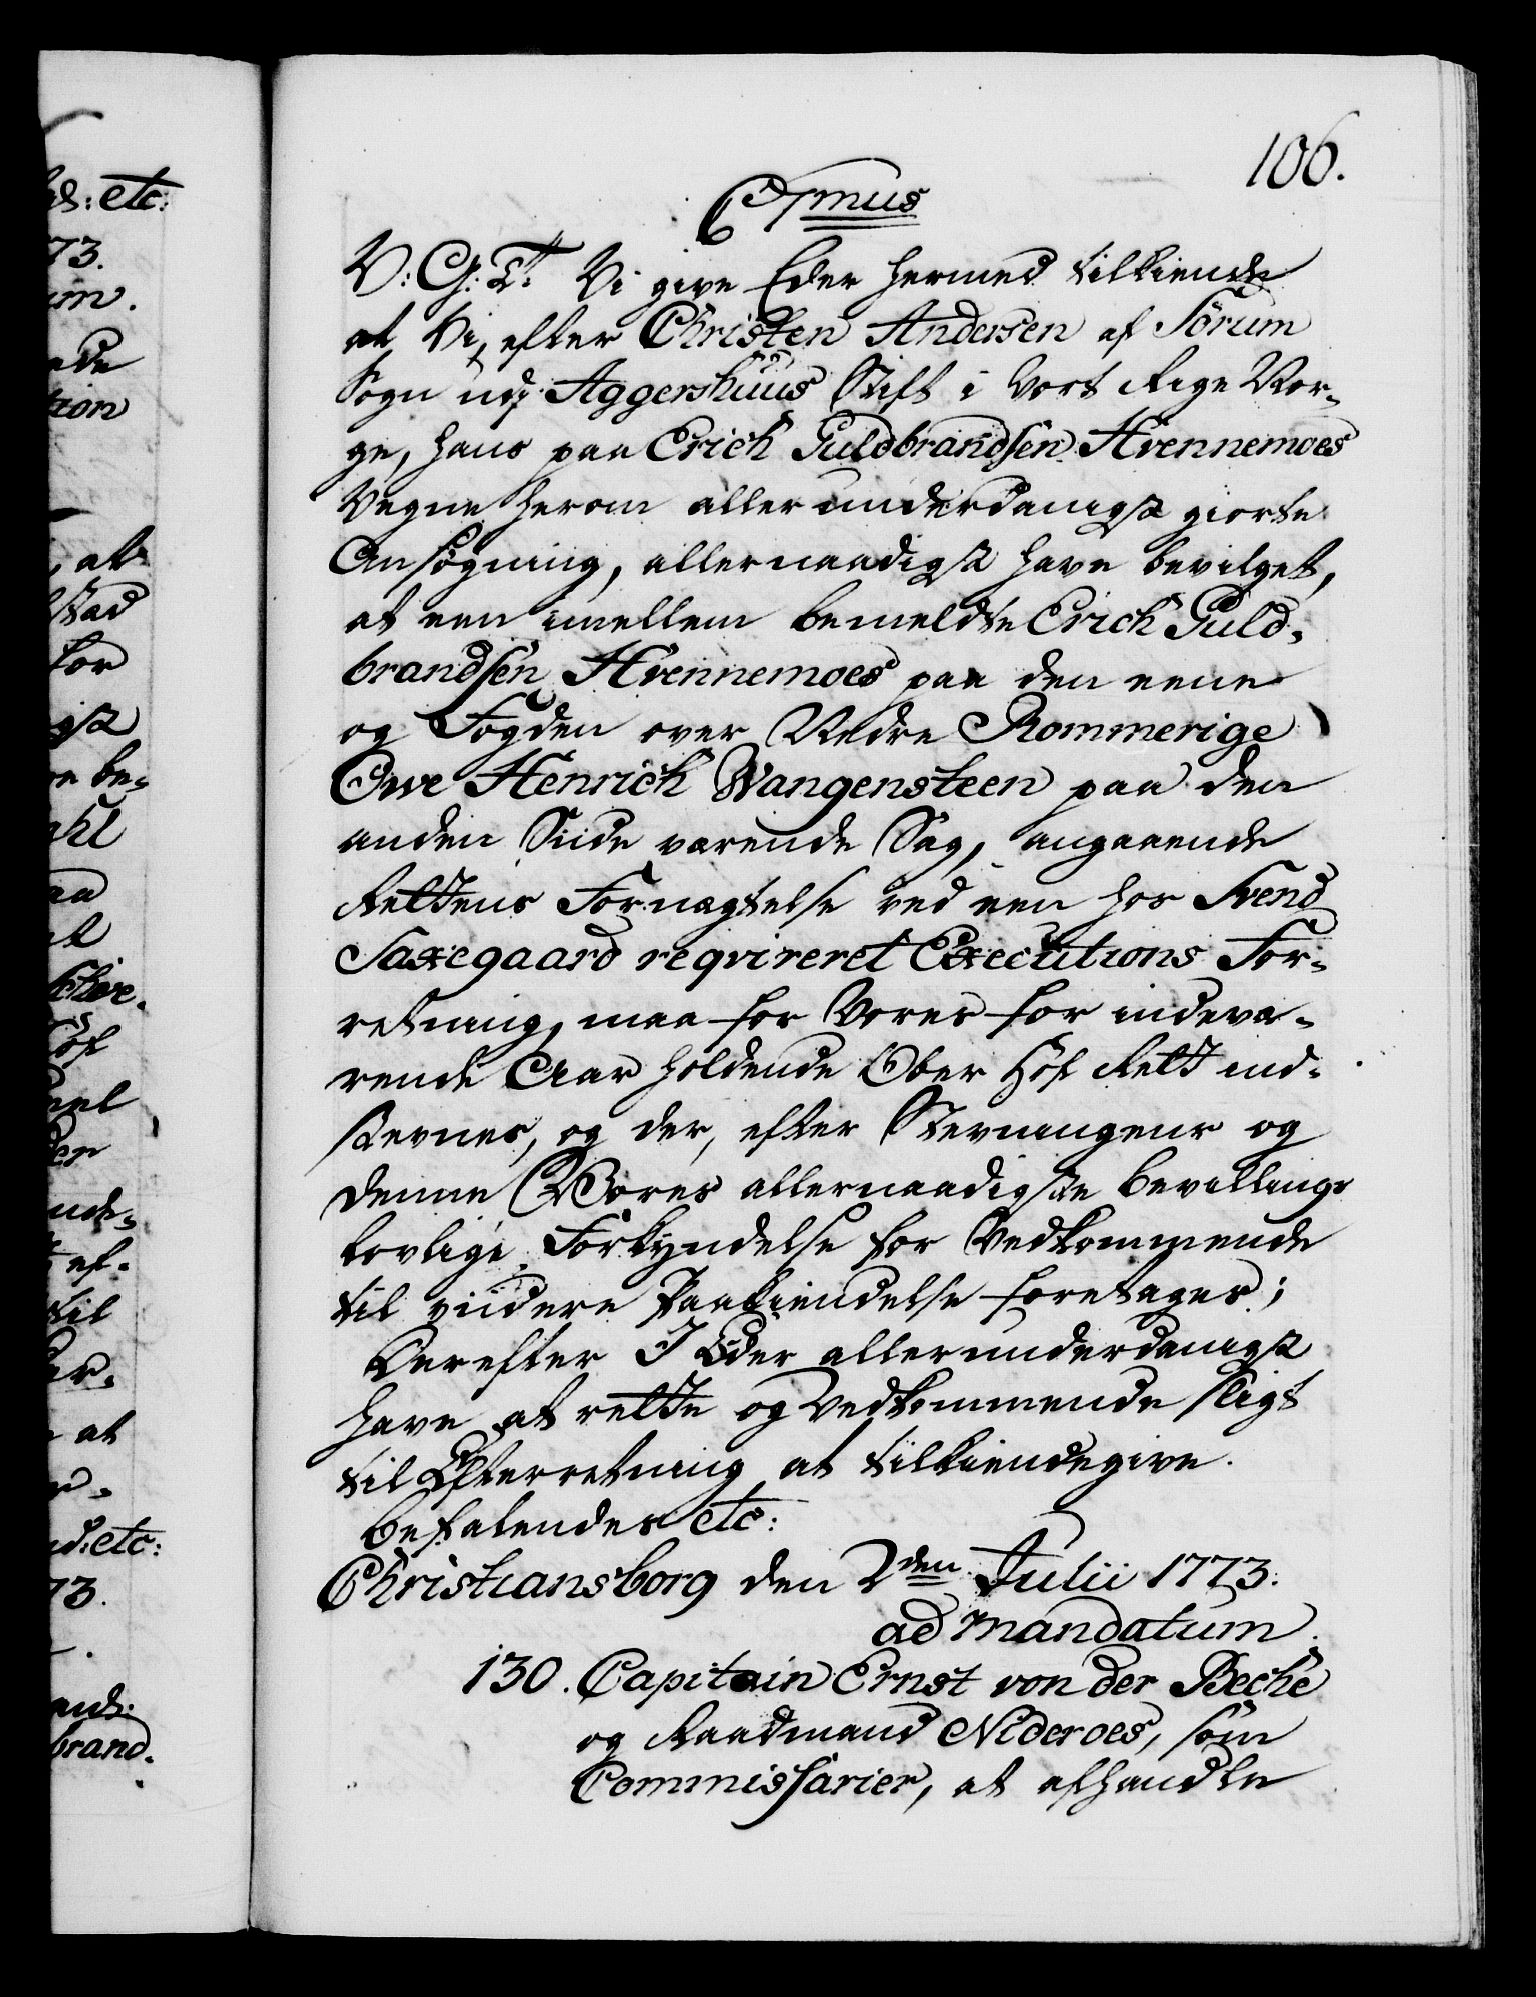 106.
C7mus
V: G: T: Vi give Eder hermed tilkiende
at Vi, efter Christen Andersen af Sørum
Sogn udi Aggershuus Stift i Vort Rige Nor-
ge, hans paa Erich Guldbrandsen Hvennemoes
Vegne herom allerunderdanigst giorte
Ansøgning, allernaadigst have bevilget,
at een imellem bemeldte Erich Guld-
brandsen Hvennemoes paa den eene
og Fogden over Nedre Rommerige
Owe Henrich Wangensteen paa den
anden Siide værende Sag, angaaende
Rettens Fornægtelse ved een hos Svend
Saxegaard reqvireret Executions For-
retning, maa for Vores for indevæ-
rende Aar holdende Ober Hof Rett ind-
stevnes, og der, efter Stevningens og
denne Vores allernaadigste Bevillings
lovlige Forkyndelse for Vedkommende
til viidere Paakiendelse foretages;
Derefter I Eder allerunderdanigst
have at rette og Vedkommende sligt
til Efterretning at tilkiendegive.
Befalendes etc:
Christiansborg den 2den Julii 1773.
ad mandatum.
130. Capitain Ernst von der Beche
og Raadmand Nideroes, som
Commissarier, at afhandle